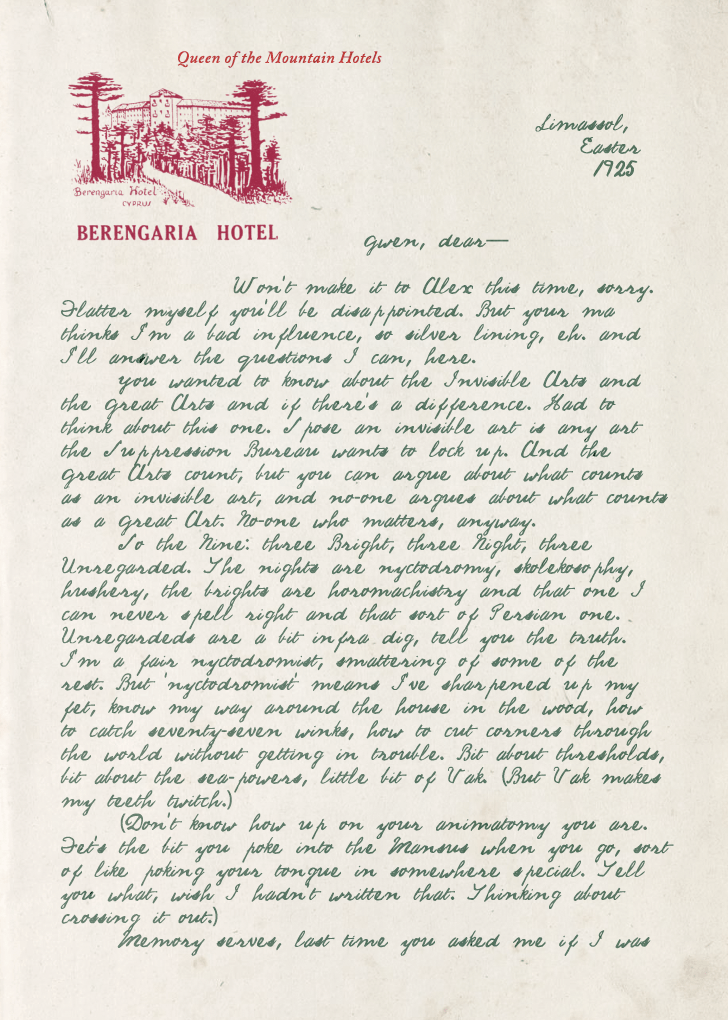 Queen of the Mountain Hotels
Berengaria Hotel
CYPRUS
BERENGARIA HOTEL
Limassol,
Easter
1925
Gwen, dear—
Won't make it to Alex this time, sorry.
Flatter myself you'll be disappointed. But your ma
thinks I'm a bad influence, so silver lining, eh. and
I'll answer the questions I can, here.
You wanted to know about the Invisible Arts and
the Great Arts and if there's a difference. Had to
think about this one. S'pose an invisible art is any art
the Suppression Bureau wants to lock up. And the
Great Arts count, but you can argue about what counts
as an invisible art, and no-one argues about what counts
as a Great Art. No-one who matters, anyway.
So the Nine: three Bright, three Night, three
Unregarded. The nights are nyctodromy, skolekosophy,
hushery, the brights are horomachistry and that one I
can never spell right and that sort of Persian one.
Unregardeds are a bit infra dig, tell you the truth.
I'm a fair nyctodromist, smattering of some of the
rest. But 'nyctodromist' means I've sharpened up my
fet, know my way around the house in the wood, how
to catch seventy-seven winks, how to cut corners through
the world without getting in trouble. Bit about thresholds,
bit about the sea-powers, little bit of Vak. (But Vak makes
my teeth twitch.)
(Don't know how up on your animatomy you are.
Fet's the bit you poke into the Mansus when you go, sort
of like poking your tongue in somewhere special. Tell
you what, wish I hadn't written that. Thinking about
crossing it out.)
Memory serves, last time you asked me if I was